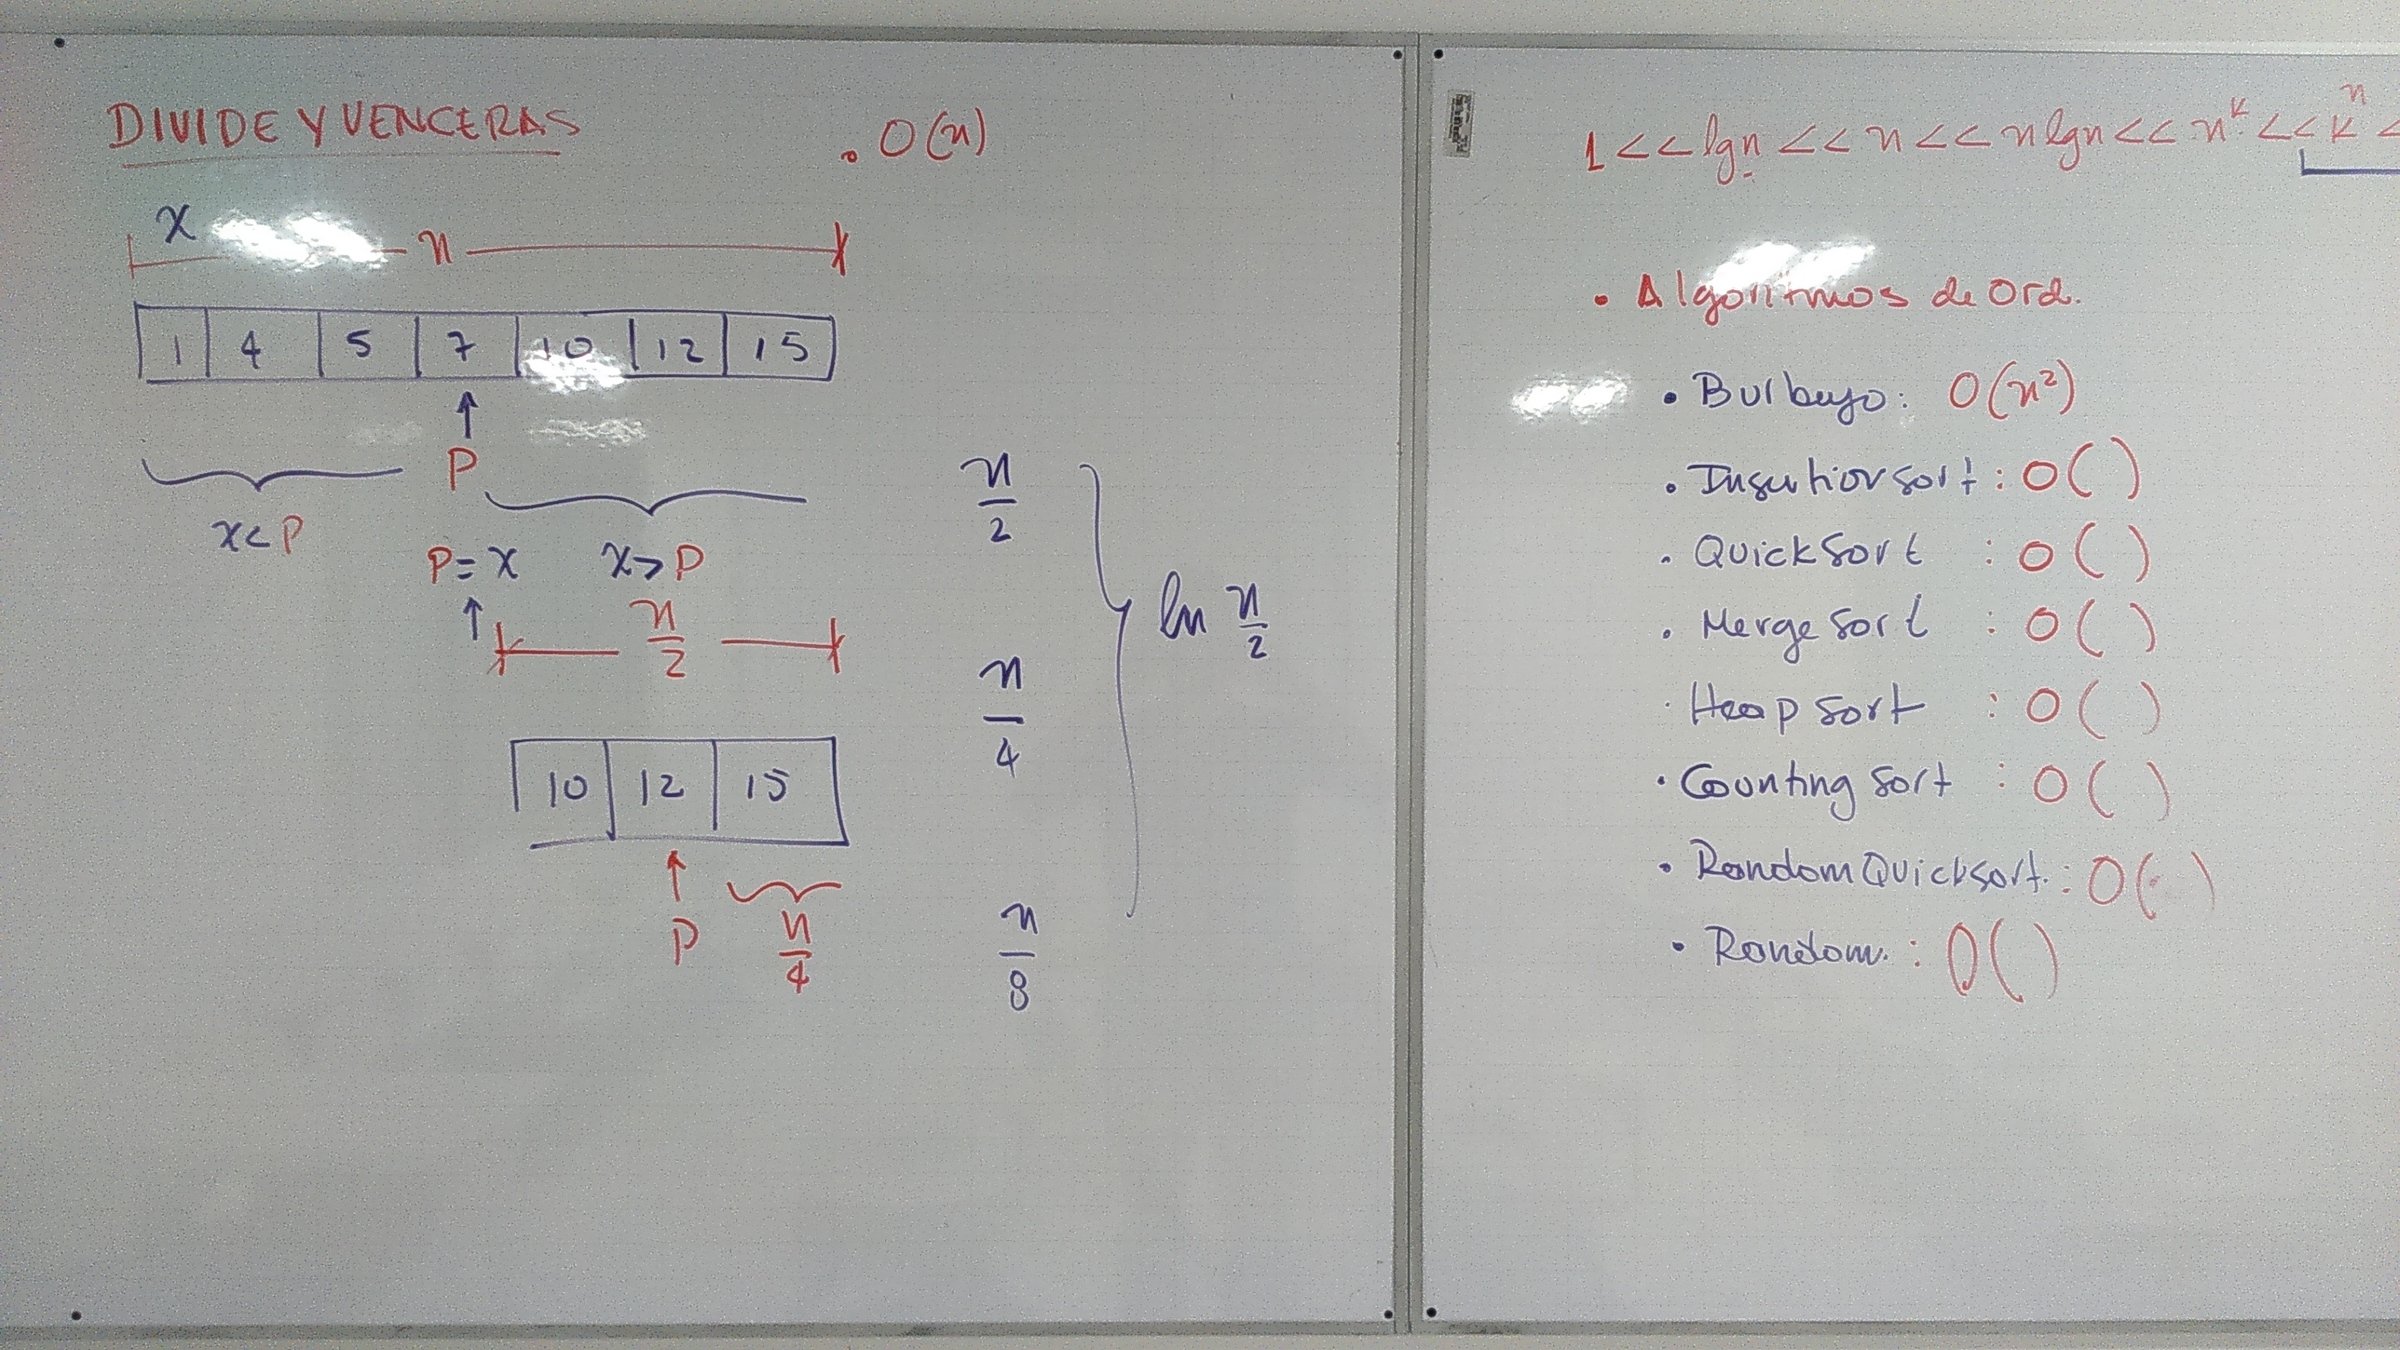 DIVIDE Y VENCERAS
. O(n)
x
n
1 4 5 7 10 12 15
P
x<P
P=x x>P
n/2
10 12 15
P n/4
n/2
n/4
n/8
ln n/2
1 << lgn << n << n lgn << n^k << k^n <
• Algoritmos de Ord.
• Burbuja: O(n²)
• Insertion sort: O( )
• Quick Sort : O( )
• Merge Sort : O( )
• Heap Sort : O( )
• Counting Sort : O( )
• Random Quicksort: O( )
• Random: O( )